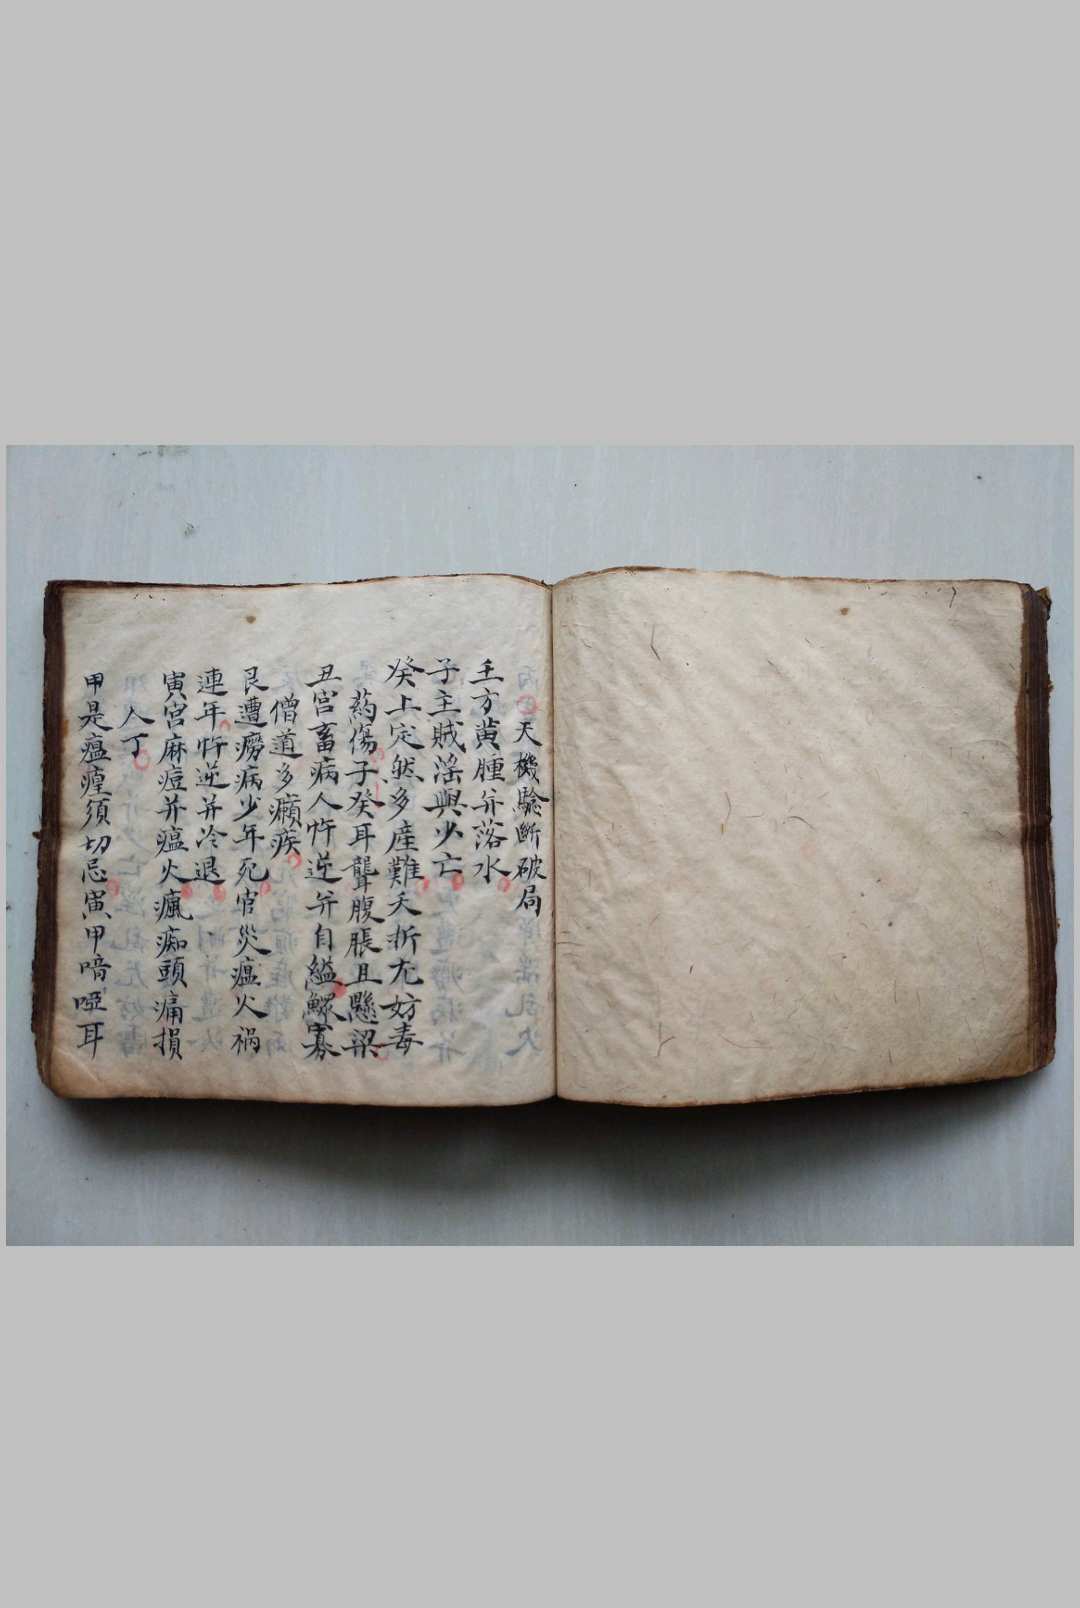 天機驗断破局
壬方黄腫并落水
子主賊滛與少亡
癸上定然多産難夭折尤妨毒
药傷子癸耳聾腹脹且懸梁
丑宫畜病人忤逆并自縊鰥寡
僧道多癩疾
艮遭癆病少年死官災瘟火禍
連年忤逆并冷退
寅宫麻痘并瘟火瘋痴頭痛損
人丁
甲是瘟㾮須切忌寅甲喑啞耳